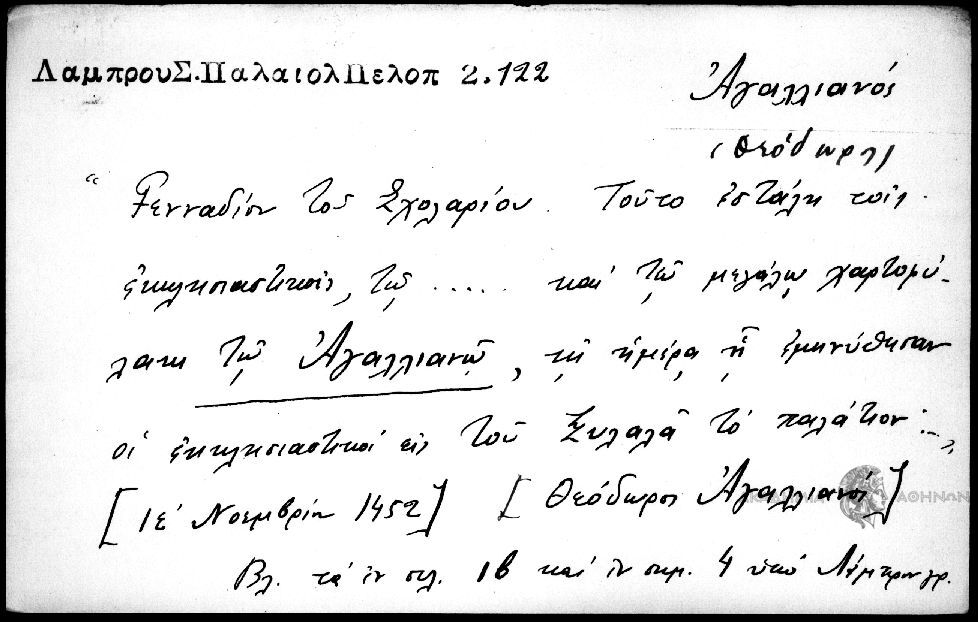 ΛαμπρουΣ.ΠαλαιολΠελοπ 2.122
Ἀγαλλιανός
(Θεόδωρος)
“ Γενναδίου τοῦ Σχολαρίου. Τοῦτο ἐστάλη τοῖς
ἐκκλησιαστικοῖς, τῷ ..... καὶ τῷ μεγάλῳ χαρτοφύ-
λακι τῷ Ἀγαλλιανῷ, τῇ ἡμέρᾳ ᾗ ἐμηνύθησαν
οἱ ἐκκλησιαστικοί εἰς τοῦ Ξυλαλᾶ τὸ παλάτιον :-„
[ΙΕ΄ Νοεμβρίου 1452] [Θεόδωρος Ἀγαλλιανός]
ΑΘΗΝΩΝ
Βλ. τὰ ἐν σελ. 1β καὶ ἐν σημ. 4 ὑπὸ